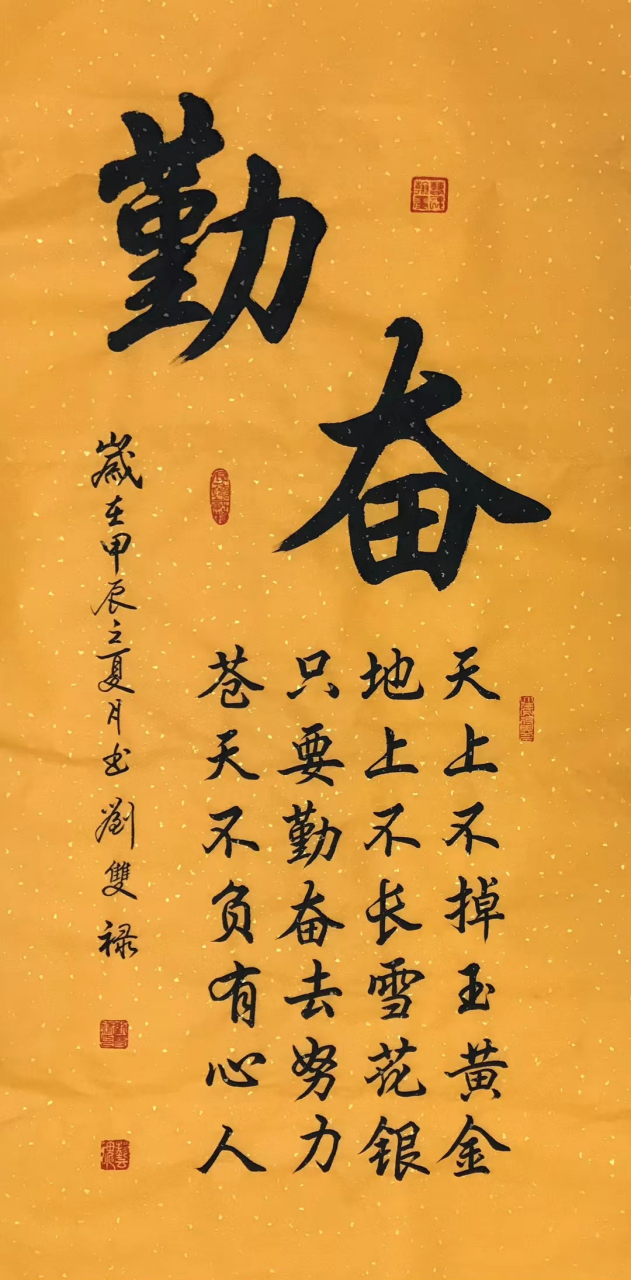 勤奋
天上不掉玉黄金
地上不长雪花银
只要勤奋去努力
苍天不负有心人
嵗在甲辰之夏月书劉雙禄